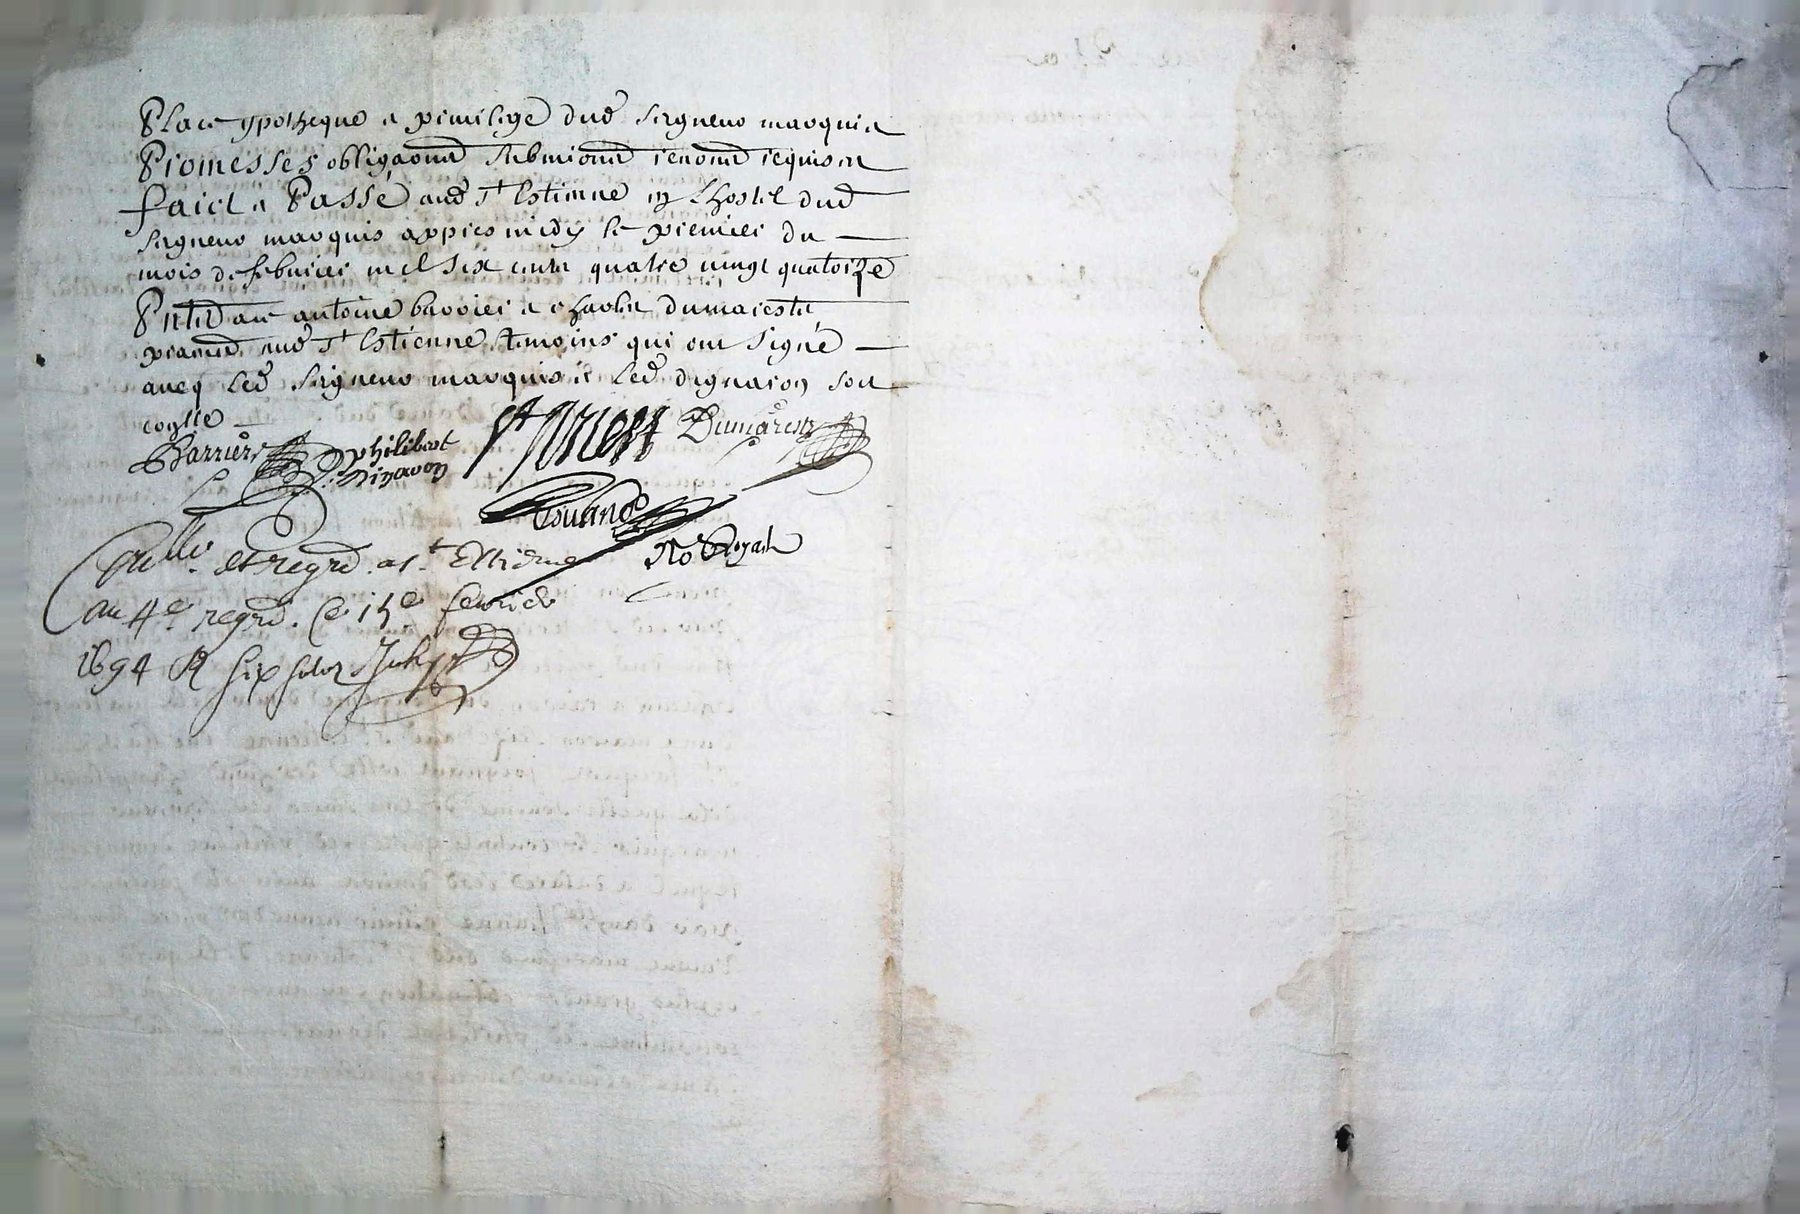 Place ypotheque a privilege dud seigneur marquis
Promesses obligaons submions renons requison
faict a Passé aud St Estienne en lhostel dud
seigneur marquis appres midy le premier du
mois de febvrier mil six cents quatre vingt quatorze
antoine barrier a charles dumareste
aud St Estienne temoins qui ont signé
aveq led seigneur marquis et led dignaron soit
Barriere philibert St Priest Dumarest
dignaron
No Royal
et regré a St Etienne
au 4e regre. Ce 15e fevrier
1694 R six solz